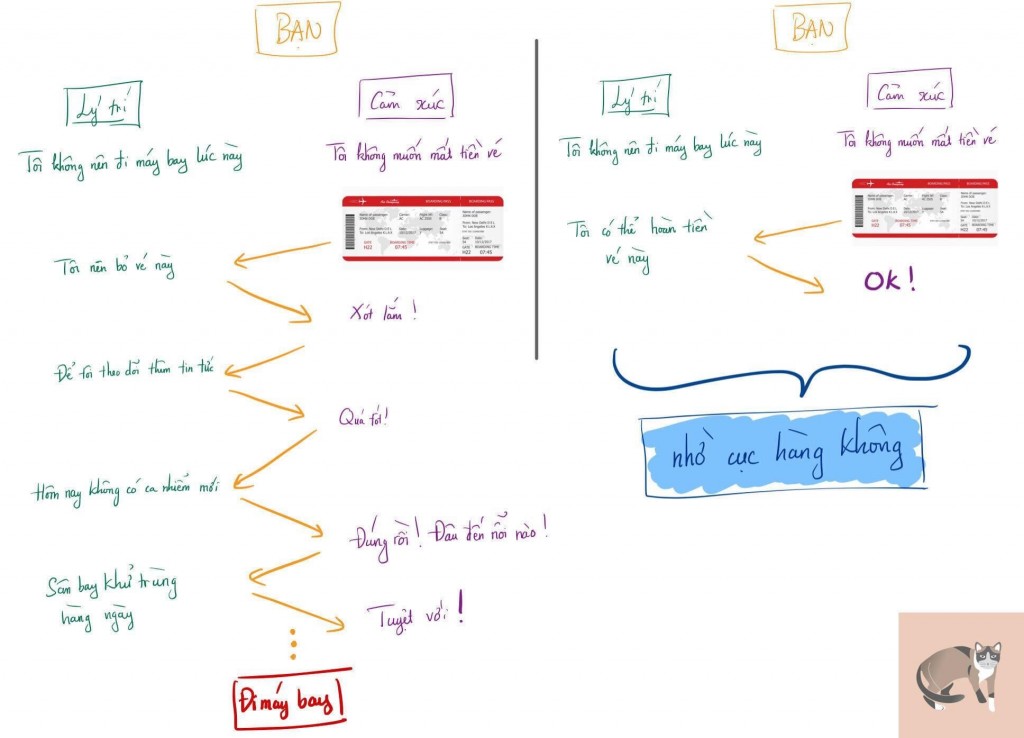 BẠN
Lý trí
Cảm xúc
Tôi không nên đi máy bay lúc này
Tôi không muốn mất tiền vé
BOARDING PASS
BOARDING PASS
H22 07:45
Tôi nên bỏ vé này
Xót lắm!
Để tôi theo dõi thêm tin tức
Quá tốt!
Hôm nay không có ca nhiễm mới
Đúng rồi! Đâu đến nỗi nào!
Sân bay khử trùng
hàng ngày
Tuyệt vời!
Đi máy bay
BẠN
Lý trí
Cảm xúc
Tôi không nên đi máy bay lúc này
Tôi không muốn mất tiền vé
BOARDING PASS
H22 07:45
Tôi có thể hoàn tiền
vé này
OK!
nhờ cục hàng không